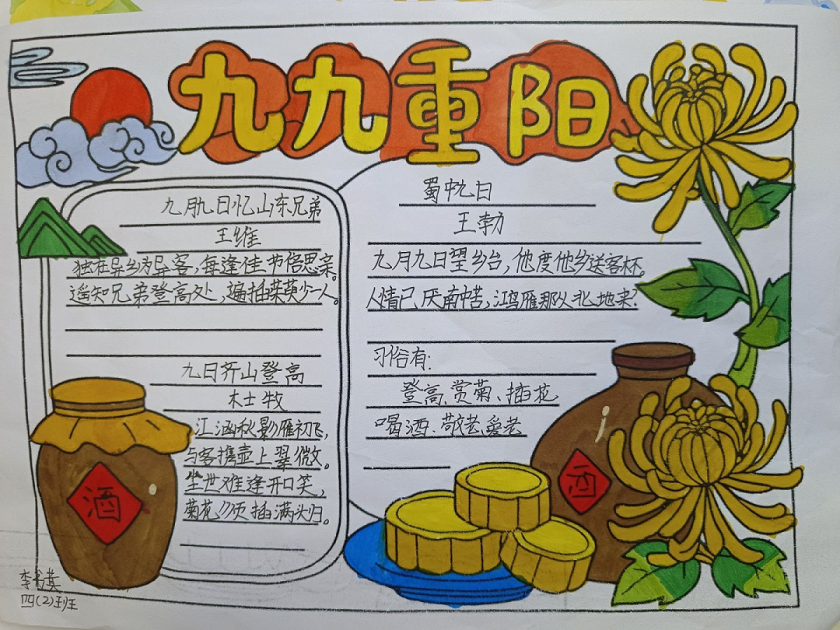 九九重阳
九月九日忆山东兄弟
王维
独在异乡为异客,每逢佳节倍思亲。
遥知兄弟登高处,遍插茱萸少一人。
九日齐山登高
杜牧
江涵秋影雁初飞,
与客携壶上翠微。
尘世难逢开口笑,
菊花须插满头归。
蜀中九日
王勃
九月九日望乡台,他席他乡送客杯。
人情已厌南中苦,鸿雁那从北地来?
习俗有:
登高、赏菊、插花
喝酒、敬老、爱老
酒
酒
四(2)班